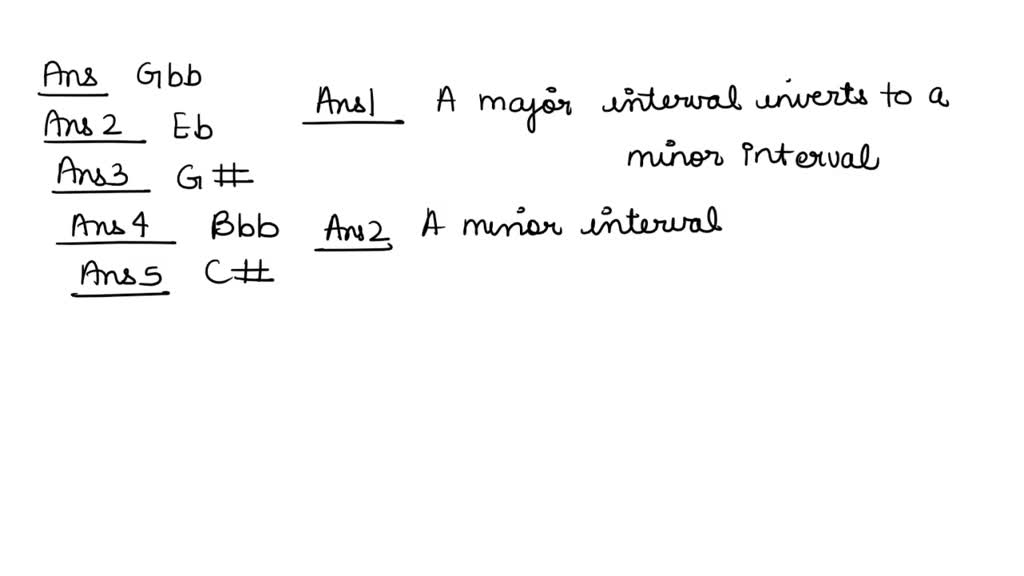 Ans Gbb
Ans 2 Eb
Ans3 G#
Ans 4 Bbb
Ans 5 C#
Ans1 A major interval inverts to a
minor interval
Ans2 A minor interval